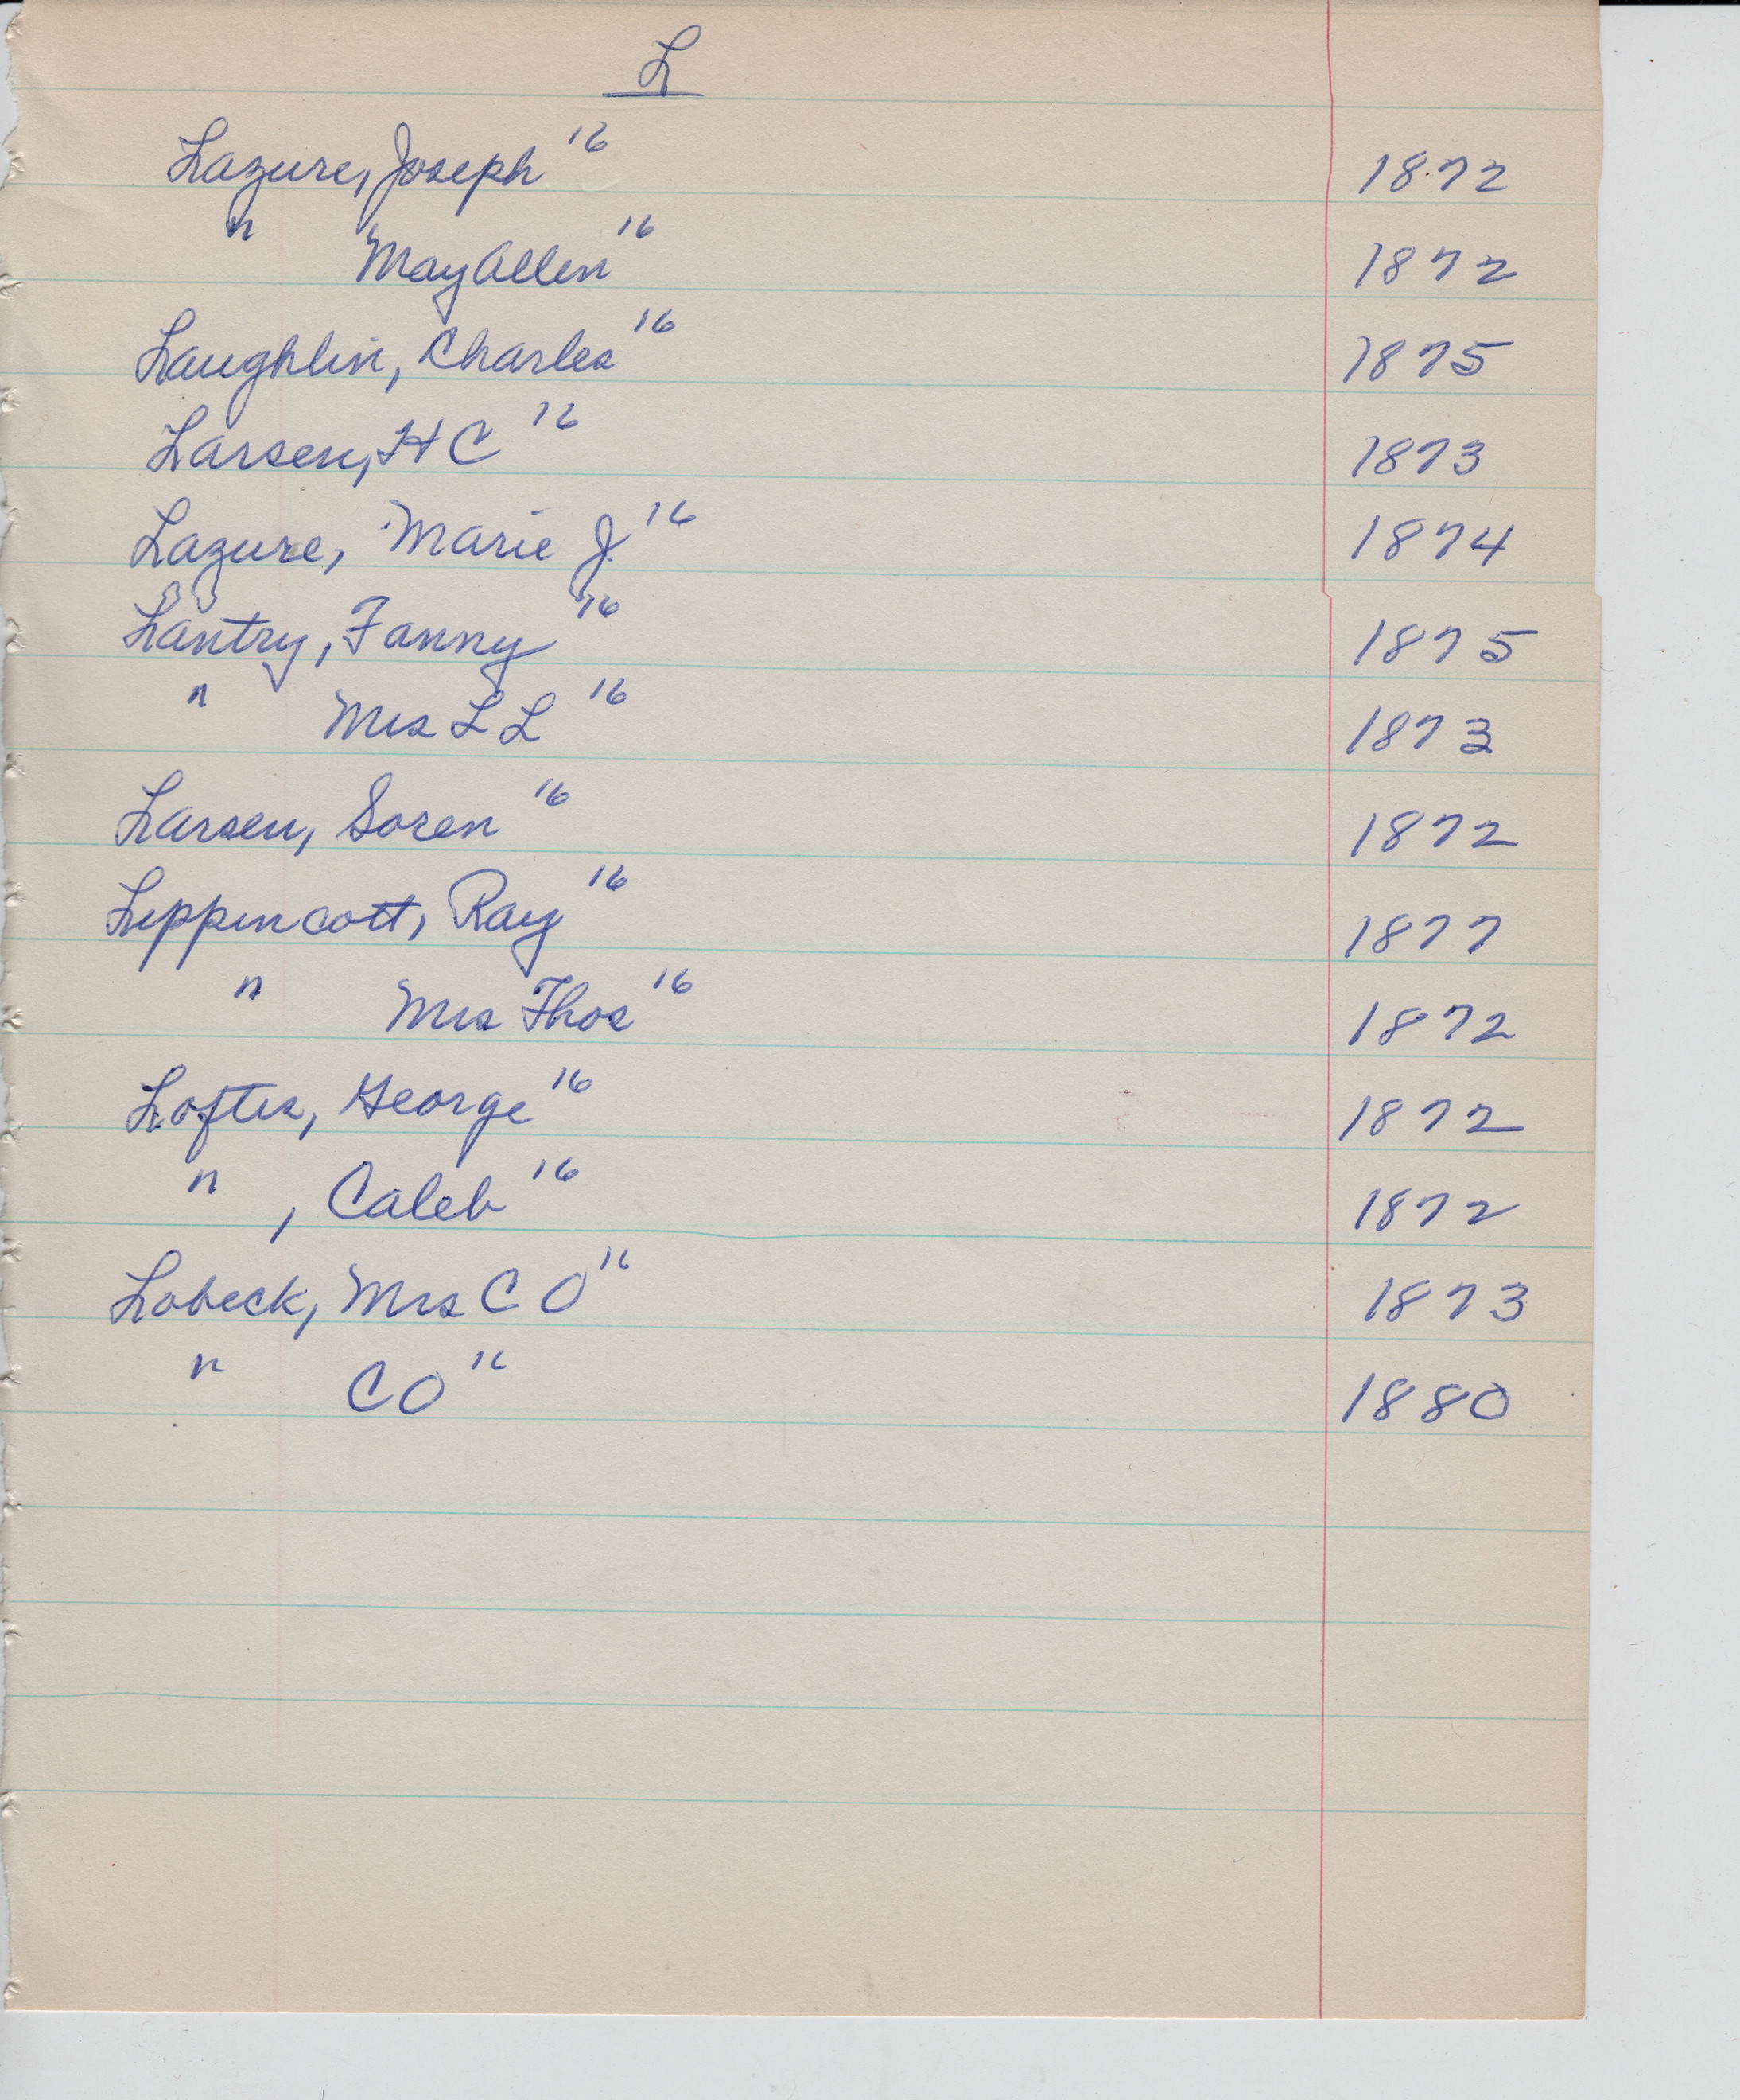 L
Lazure, Joseph 16 1872
" May Allen 16 1872
Laughlin, Charles 16 1875
Larsen, H C 16 1873
Lazure, Marie J. 16 1874
Lantry, Fanny 16 1875
" Mrs L L 16 1873
Larsen, Soren 16 1872
Lippincott, Ray 16 1877
" Mrs Thos 16 1872
Loftis, George 16 1872
" , Caleb 16 1872
Lobeck, Mrs C O 16 1873
" C O 16 1880